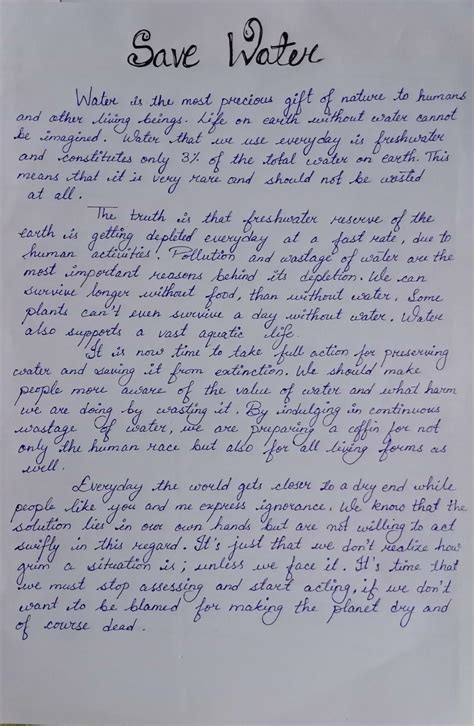 Save Water
Water is the most precious gift of nature to humans
and other living beings. Life on earth without water cannot
be imagined. Water that we use everyday is freshwater
and constitutes only 3% of the total water on earth. This
means that it is very rare and should not be wasted
at all.
The truth is that freshwater reserve of the
earth is getting depleted everyday at a fast rate, due to
human activities. Pollution and wastage of water are the
most important reasons behind its depletion. We can
survive longer without food, than without water. Some
plants can't even survive a day without water. Water
also supports a vast aquatic life.
It is now time to take full action for preserving
water and saving it from extinction. We should make
people more aware of the value of water and what harm
we are doing by wasting it. By indulging in continuous
wastage of water, we are preparing a coffin for not
only the human race but also for all living forms as
well.
Everyday the world gets closer to a dry end while
people like you and me express ignorance. We know that the
solution lie in our own hands but are not willing to act
swiftly in this regard. It's just that we don't realize how
grim a situation is; unless we face it. It's time that
we must stop assessing and start acting, if we don't
want to be blamed for making the planet dry and
of course dead.